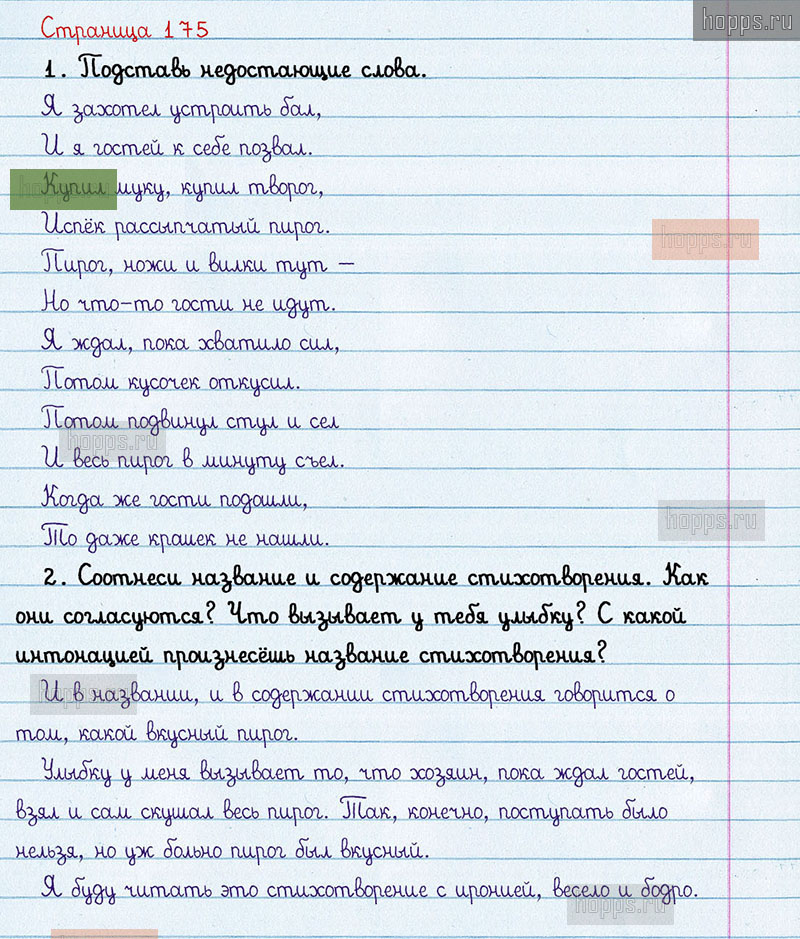 hopps.ru
Страница 175
1. Подставь недостающие слова.
Я захотел устроить бал,
И я гостей к себе позвал.
Купил муку, купил творог,
Испёк рассыпчатый пирог.
hopps.ru
Пирог, ножи и вилки тут –
Но что-то гости не идут.
Я ждал, пока хватило сил,
Потом кусочек откусил.
Потом подвинул стул и сел
hopps.ru
И весь пирог в минуту съел.
Когда же гости подошли,
hopps.ru
То даже крошек не нашли.
2. Соотнеси название и содержание стихотворения. Как
они согласуются? Что вызывает у тебя улыбку? С какой
интонацией произнесёшь название стихотворения?
И в названии, и в содержании стихотворения говорится о
том, какой вкусный пирог.
Улыбку у меня вызывает то, что хозяин, пока ждал гостей,
взял и сам скушал весь пирог. Так, конечно, поступать было
нельзя, но уж больно пирог был вкусный.
Я буду читать это стихотворение с иронией, весело и бодро.
hopps.ru